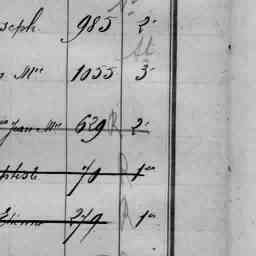 seph 985 2e
Mie 1055 3e
Jean Mie 629 R 2e
ptiste 70 R 1er
Etienne 279 R 1er